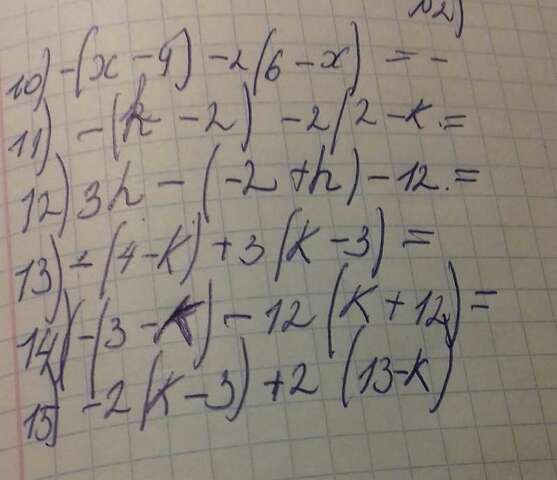 №2)
10) -(x - 9) - 2(6 - x) = -
11) -(k - 2) - 2(2 - k =
12) 3h - (-2 + h) - 12 =
13) -(4 - k) + 3(k - 3) =
14) -(3 - k) - 12(k + 12) =
15) -2(k - 3) + 2(13 - k)